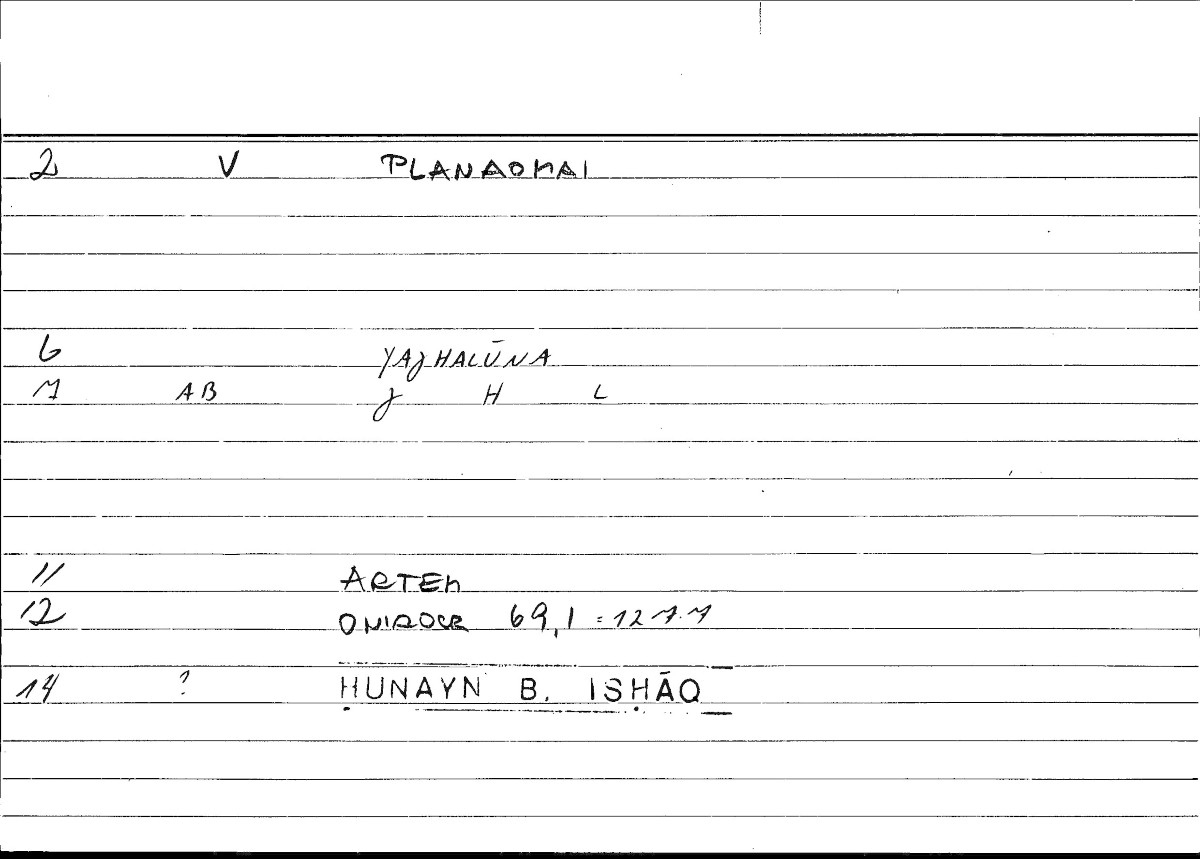 2 V PLANAOMAI
6 YAJHALŪNA
7 AB J H L
11 ARTEM
12 ONIROCR 69,1 = 127.7
14 ? ḤUNAYN B. ISḤĀQ